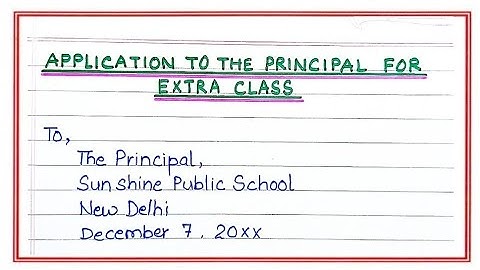 APPLICATION TO THE PRINCIPAL FOR
EXTRA CLASS
To,
The Principal,
Sunshine Public School
New Delhi
December 7, 20xx